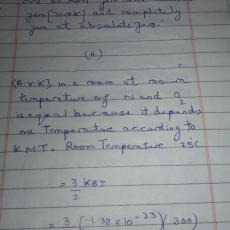 zero and completely
zero at absolute zero.
(ii)
(A.V.K) in a room at room
temperature of N and O
2
is equal because it depends
on Temperature according to
K.M.T. Room Temperature 25C
= 3/2 KBT
= 3 (-1.38 x 10^-23)(300)